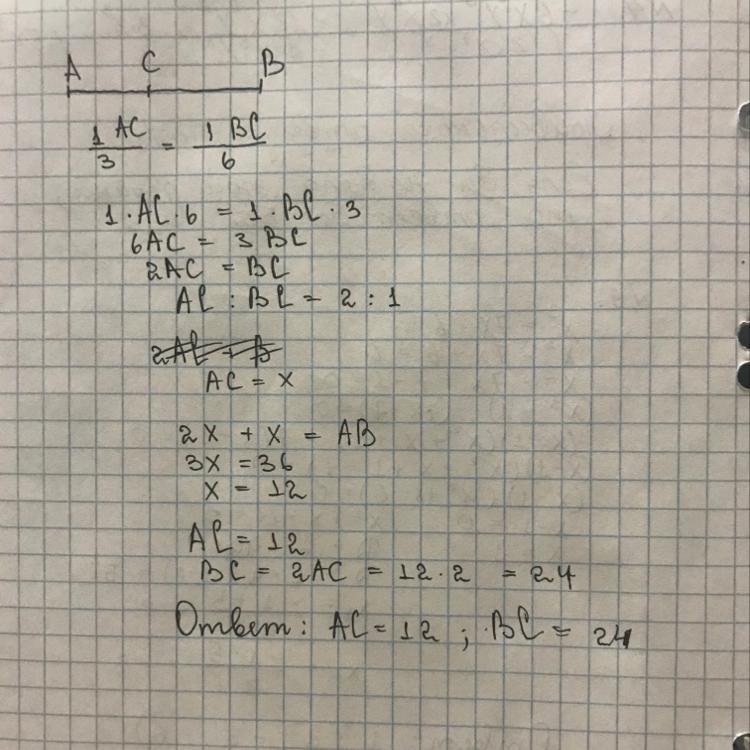 A C B
1 AC / 3 = 1 BC / 6
1 · AC · 6 = 1 · BC · 3
6AC = 3 BC
2AC = BC
AC : BC = 2 : 1
AC = x
2x + x = AB
3x = 36
x = 12
AC = 12
BC = 2AC = 12 · 2 = 24
Ответ: AC = 12 ; BC = 24